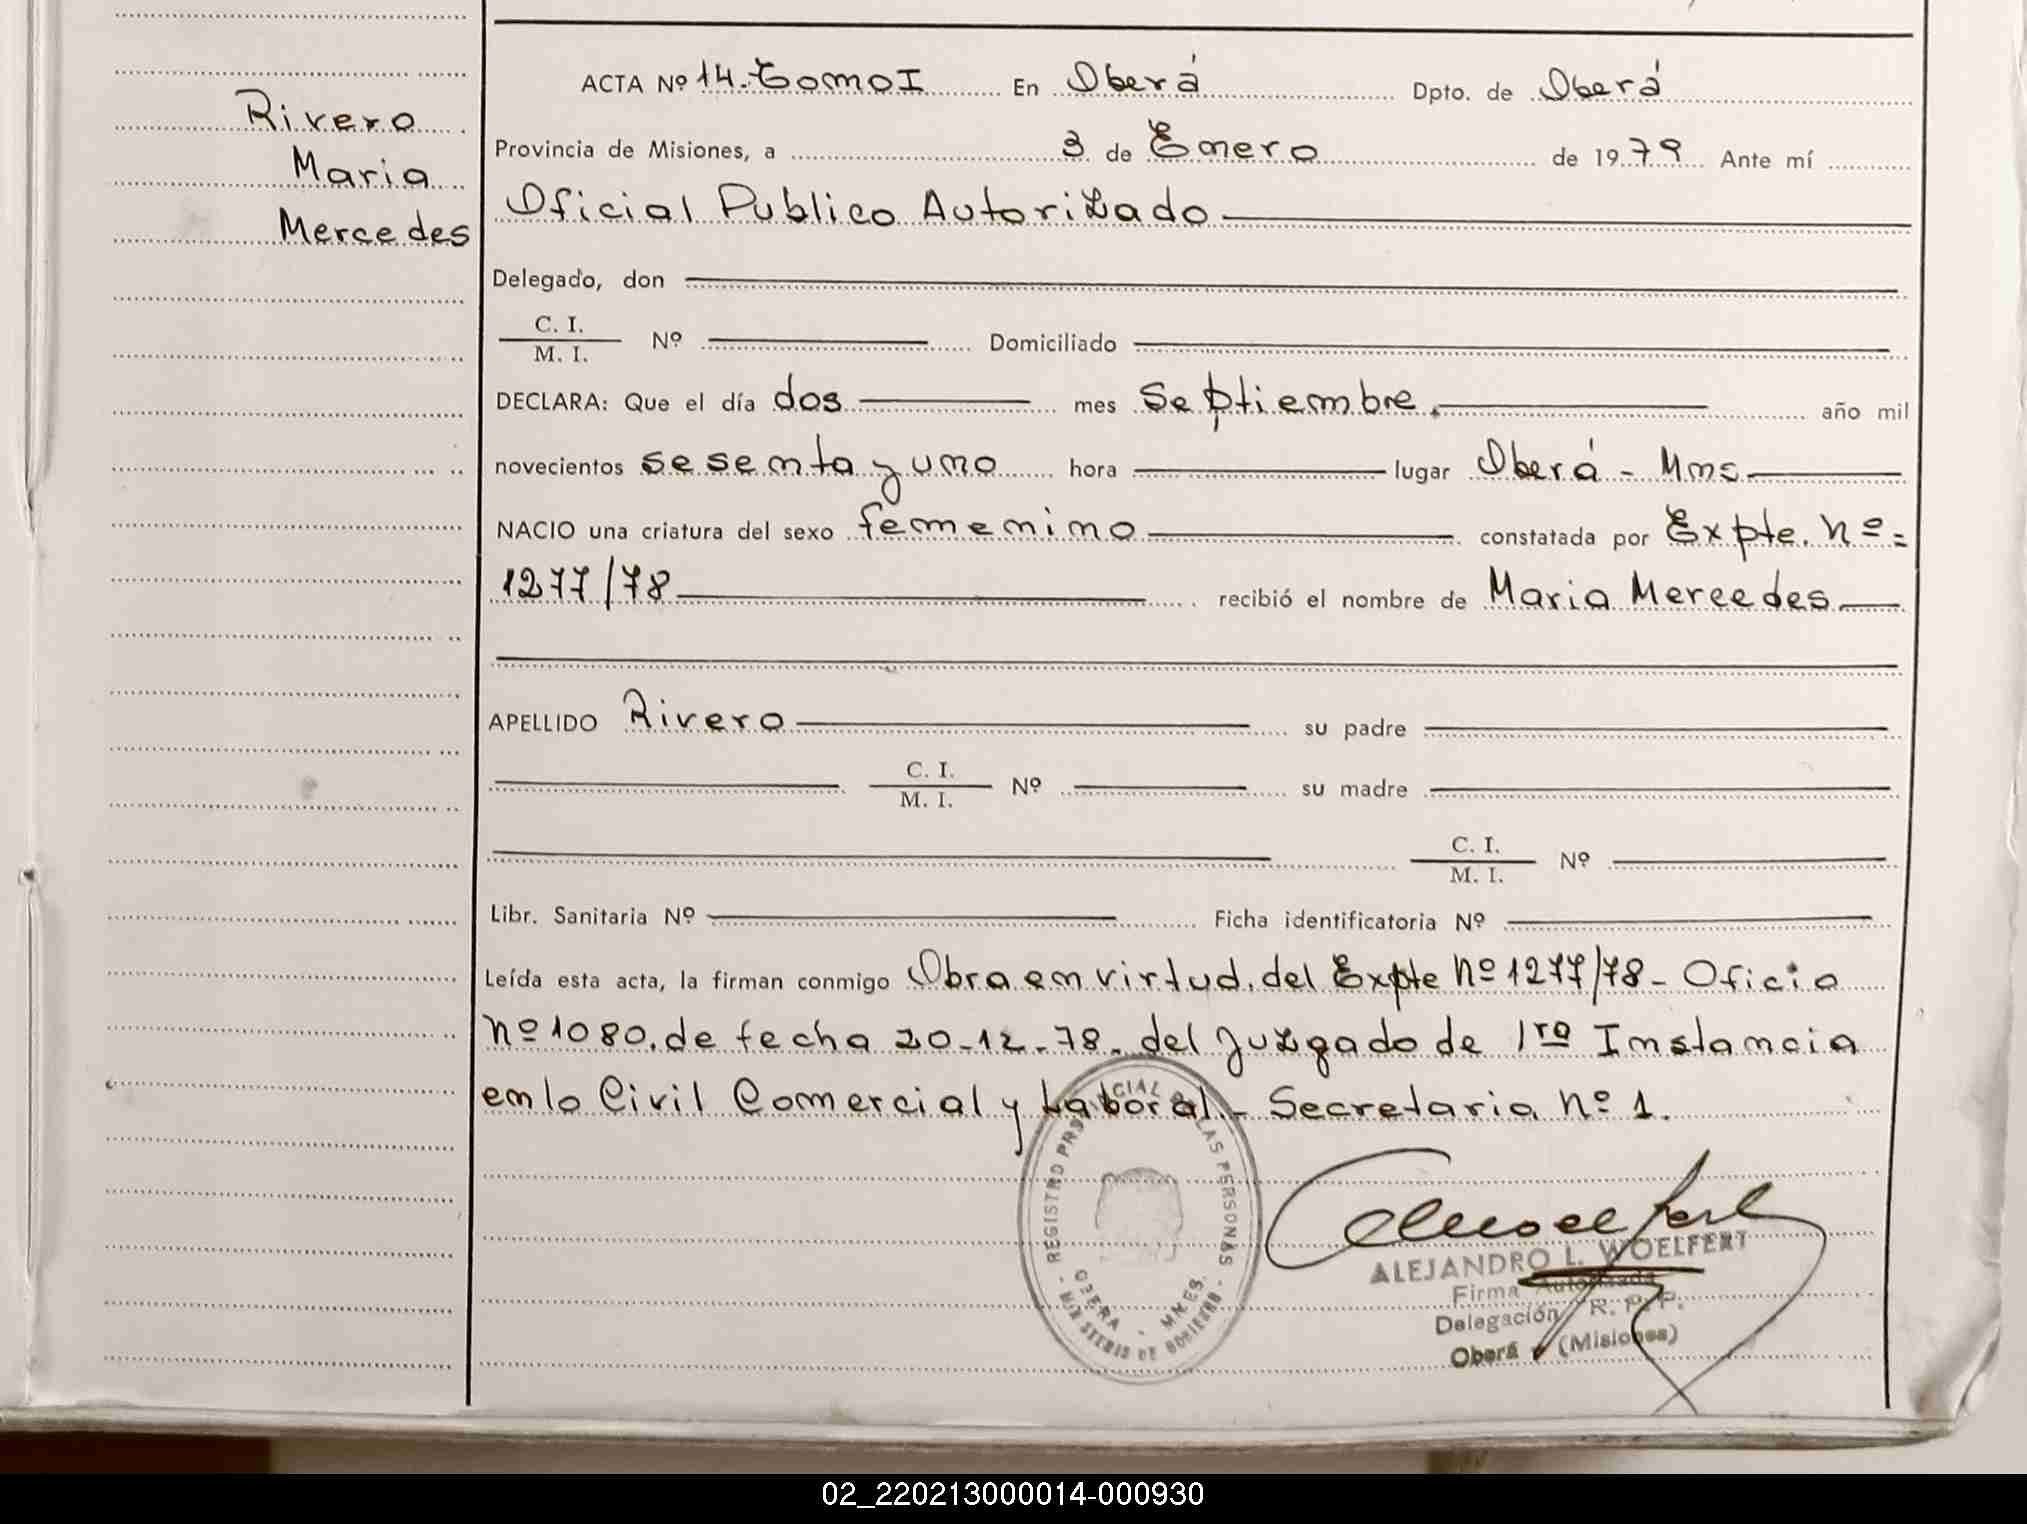 Rivero
Maria
Mercedes
ACTA Nº 14. Tomo I En Oberá Dpto. de Oberá
Provincia de Misiones, a 3 de Enero de 1979 Ante mí
Oficial Publico Autorizado
Delegado, don
C. I.
M. I. Nº Domiciliado
DECLARA: Que el día dos mes Septiembre. año mil
novecientos sesenta y uno hora lugar Oberá - Mns
NACIO una criatura del sexo femenino constatada por Expte. Nº =
1277/78 recibió el nombre de Maria Mercedes
APELLIDO Rivero su padre
C. I.
M. I. Nº su madre
C. I.
M. I. Nº
Libr. Sanitaria Nº Ficha identificatoria Nº
Leída esta acta, la firman conmigo Obra en virtud. del Expte Nº 1277/78 - Oficio
Nº 1080. de fecha 20-12-78. del Juzgado de 1ra Instancia
en lo Civil Comercial y Laboral. - Secretaria Nº 1.
- REGISTRO PROVINCIAL DE LAS PERSONAS -
OBERA - MNES.
MINISTERIO DE GOBIERNO
ALEJANDRO L. WOELFERT
Firma Autorizada
Delegación R. P. P.
Oberá (Misiones)
02_220213000014-000930